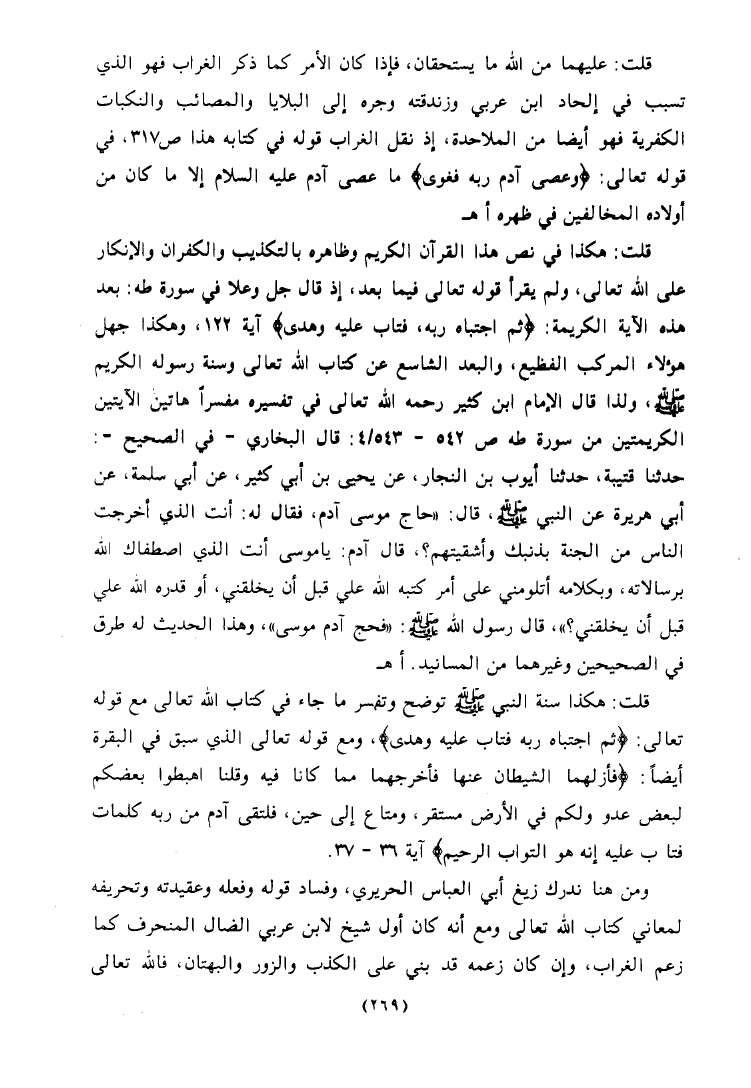 قلت: عليهما من الله ما يستحقان، فإذا كان الأمر كما ذكر الغراب فهو الذي
تسبب في إلحاد ابن عربي وزندقته وجره إلى البلايا والمصائب والنكبات
الكفرية فهو أيضا من الملاحدة، إذ نقل الغراب قوله في كتابه هذا ص٣١٧، في
قوله تعالى: ﴿وعصى آدم ربه فغوى﴾ ما عصى آدم عليه السلام إلا ما كان من
أولاده المخالفين في ظهره أ هـ
قلت: هكذا في نص هذا القرآن الكريم وظاهره بالتكذيب والكفران والإنكار
على الله تعالى، ولم يقرأ قوله تعالى فيما بعد، إذ قال جل وعلا في سورة طه: بعد
هذه الآية الكريمة: ﴿ثم اجتباه ربه، فتاب عليه وهدى﴾ آية ١٢٢، وهكذا جهل
هؤلاء المركب الفظيع، والبعد الشاسع عن كتاب الله تعالى وسنة رسوله الكريم
ﷺ، ولذا قال الإمام ابن كثير رحمه الله تعالى في تفسيره مفسراً هاتين الآيتين
الكريمتين من سورة طه ص ٥٤٢ - ٤/٥٤٣: قال البخاري - في الصحيح -:
حدثنا قتيبة، حدثنا أيوب بن النجار، عن يحيى بن أبي كثير، عن أبي سلمة، عن
أبي هريرة عن النبي ﷺ، قال: «حاج موسى آدم، فقال له: أنت الذي أخرجت
الناس من الجنة بذنبك وأشقيتهم؟، قال آدم: ياموسى أنت الذي اصطفاك الله
برسالاته، وبكلامه أتلومني على أمر كتبه الله علي قبل أن يخلقني، أو قدره الله علي
قبل أن يخلقني؟»، قال رسول الله ﷺ: «فحج آدم موسى»، وهذا الحديث له طرق
في الصحيحين وغيرهما من المسانيد. أ هـ
قلت: هكذا سنة النبي ﷺ توضح وتفسر ما جاء في كتاب الله تعالى مع قوله
تعالى: ﴿ثم اجتباه ربه فتاب عليه وهدى﴾، ومع قوله تعالى الذي سبق في البقرة
أيضاً: ﴿فأزلهما الشيطان عنها فأخرجهما مما كانا فيه وقلنا اهبطوا بعضكم
لبعض عدو ولكم في الأرض مستقر، ومتاع إلى حين، فلتقى آدم من ربه كلمات
فتا ب عليه إنه هو التواب الرحيم﴾ آية ٣٦ - ٣٧.
ومن هنا ندرك زيغ أبي العباس الحريري، وفساد قوله وفعله وعقيدته وتحريفه
لمعاني كتاب الله تعالى ومع أنه كان أول شيخ لابن عربي الضال المنحرف كما
زعم الغراب، وإن كان زعمه قد بني على الكذب والزور والبهتان، فالله تعالى
(٢٦٩)